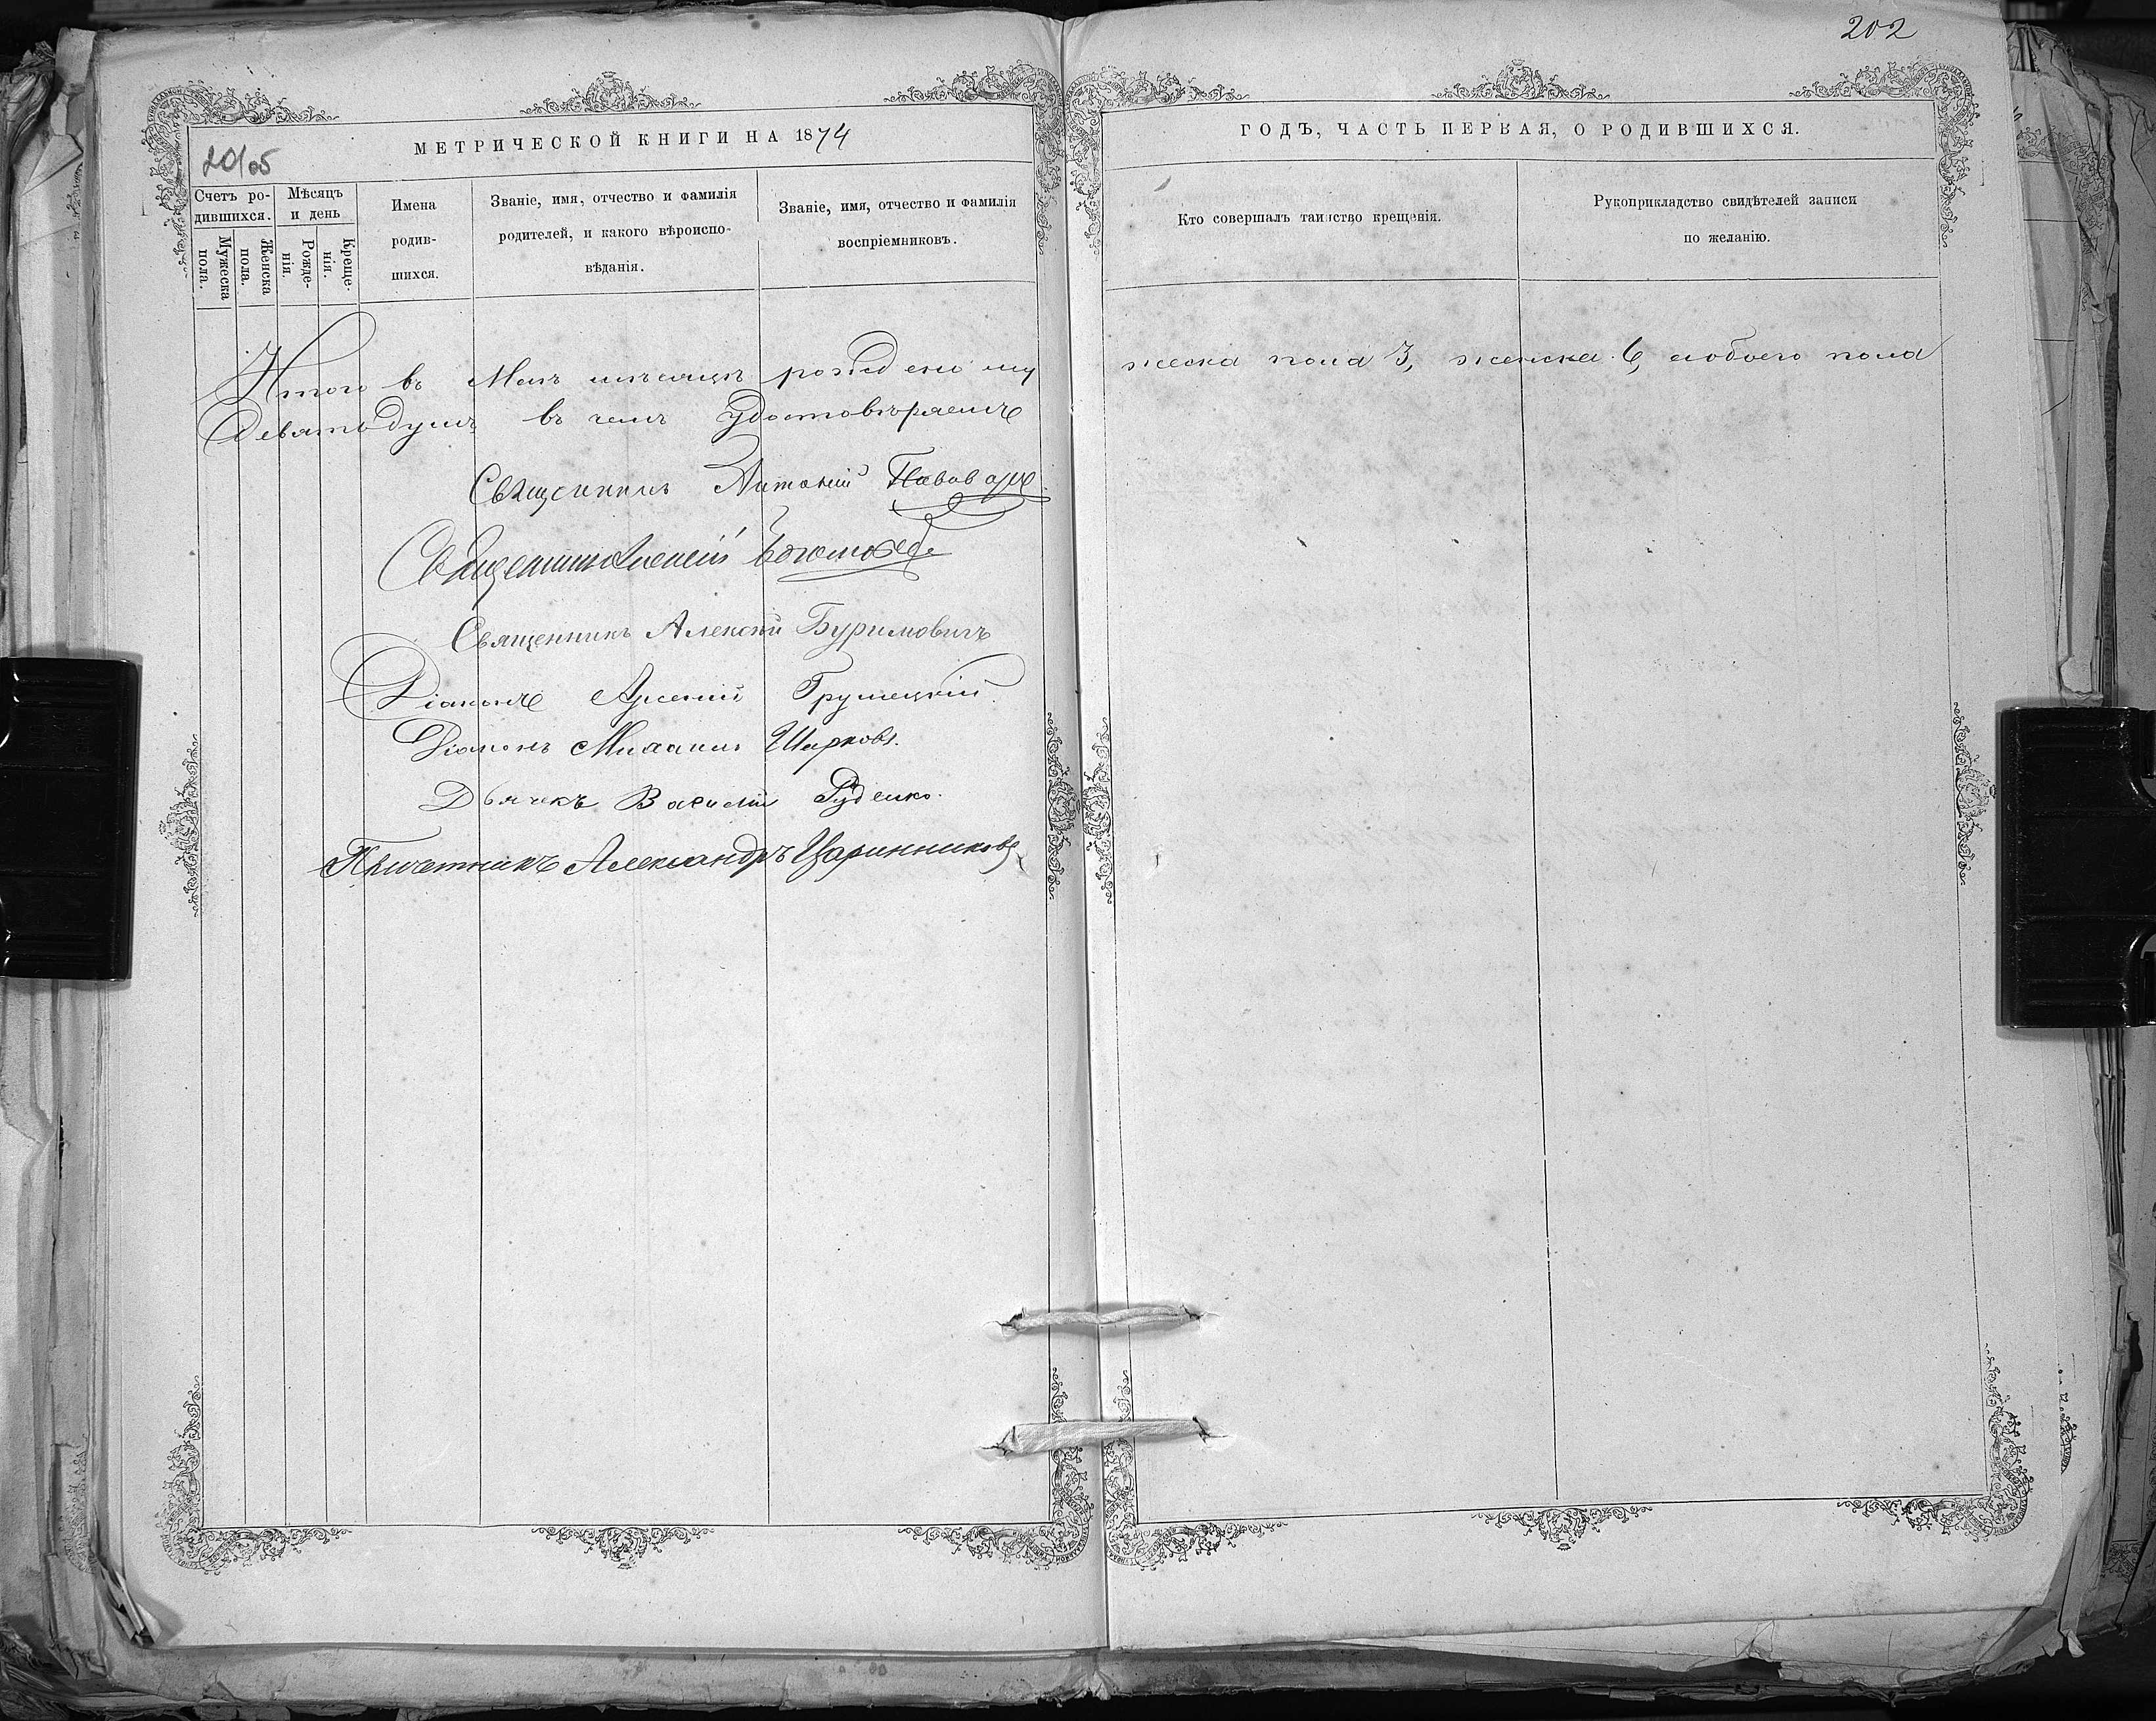 202
МЕТРИЧЕСКОЙ КНИГИ НА 1874
ГОДЪ, ЧАСТЬ ПЕРВАЯ, О РОДИВШИХСЯ.
Счетъ ро-
дившихся.
Мужеска
пола.
Женска
пола.
Мѣсяцъ
и день
Рожде-
нія.
Креще-
нія.
Имена
родив-
шихся.
Званіе, имя, отчество и фамилія
родителей, и какого вѣроиспо-
вѣданія.
Званіе, имя, отчество и фамилія
воспріемниковъ.
Кто совершалъ таинство крещенія.
Рукоприкладство свидѣтелей записи
по желанію.
Итого въ Маѣ мѣсяцѣ рождено му
жеска пола 3, женска 6, а обоего пола
Девять душъ въ чемъ удостовѣряемъ
Священникъ Антоній
Священникъ Алексій
Священникъ Алексѣй Буримовичъ
Діаконъ Арсеній Грушецкій
Діаконъ Михаилъ Шарковъ.
Дьячекъ Василій Руденко.
Причетникъ Александръ Царинниковъ